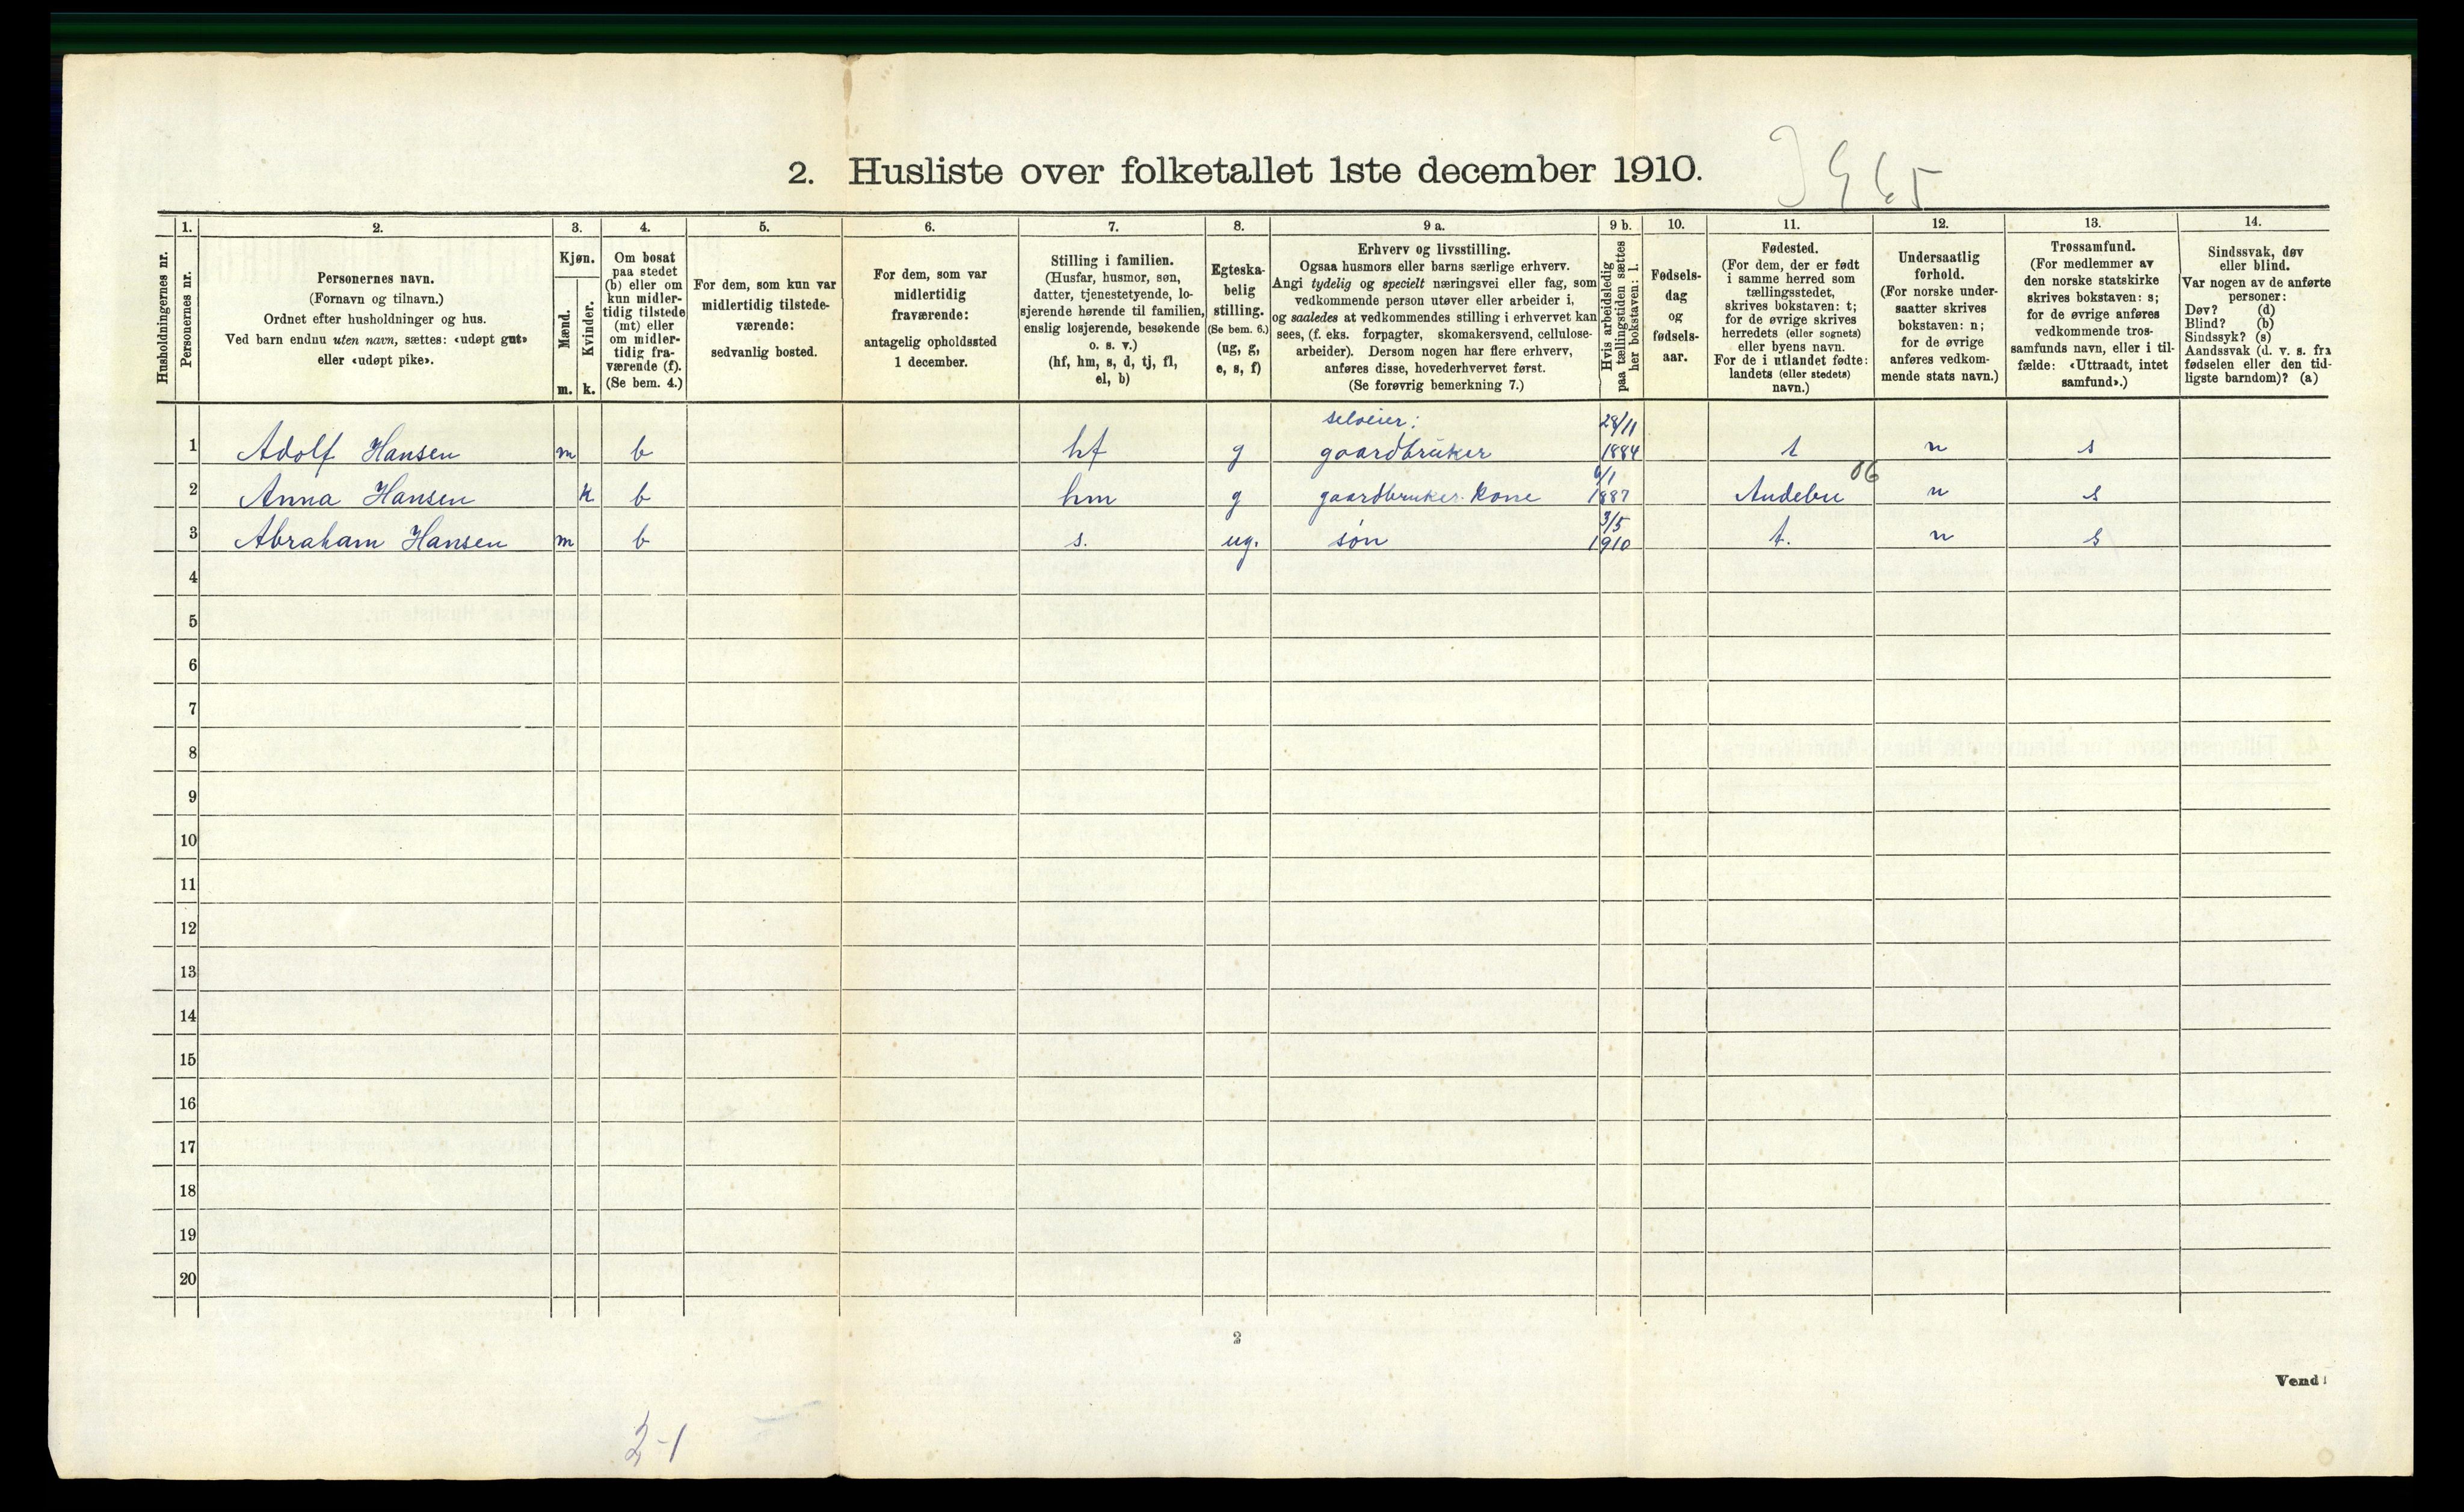 2. Husliste over folketallet 1ste december 1910.
Husholdningernes nr.
1. Personernes nr.
2. Personernes navn.
(Fornavn og tilnavn.)
Ordnet efter husholdninger og hus.
Ved barn endnu uten navn, sættes: «udøpt gut»
eller «udøpt pike».
3. Kjøn.
Mænd. m.
Kvinder. k.
4. Om bosat
paa stedet
(b) eller om
kun midler-
tidig tilstede
(mt) eller
om midler-
tidig fra-
værende (f).
(Se bem. 4.)
5. For dem, som kun var
midlertidig tilstede-
værende:
sedvanlig bosted.
6. For dem, som var
midlertidig
fraværende:
antagelig opholdssted
1 december.
7. Stilling i familien.
(Husfar, husmor, søn,
datter, tjenestetyende, lo-
sjerende hørende til familien,
enslig losjerende, besøkende
o. s. v.)
(hf, hm, s, d, tj, fl,
el, b)
8. Egteska-
belig
stilling.
(Se bem. 6.)
(ug, g,
e, s, f)
9 a. Erhverv og livsstilling.
Ogsaa husmors eller barns særlige erhverv.
Angi tydelig og specielt næringsvei eller fag, som
vedkommende person utøver eller arbeider i,
og saaledes at vedkommendes stilling i erhvervet kan
sees, (f. eks. forpagter, skomakersvend, cellulose-
arbeider). Dersom nogen har flere erhverv,
anføres disse, hovederhvervet først.
(Se forøvrig bemerkning 7.)
9 b. Hvis arbeidsledig
paa tællingstiden sættes
her bokstaven: l.
10. Fødsels-
dag
og
fødsels-
aar.
11. Fødested.
(For dem, der er født
i samme herred som
tællingsstedet,
skrives bokstaven: t;
for de øvrige skrives
herredets (eller sognets)
eller byens navn.
For de i utlandet fødte:
landets (eller stedets)
navn.)
12. Undersaatlig
forhold.
(For norske under-
saatter skrives
bokstaven: n;
for de øvrige
anføres vedkom-
mende stats navn.)
13. Trossamfund.
(For medlemmer av
den norske statskirke
skrives bokstaven: s;
for de øvrige anføres
vedkommende tros-
samfunds navn, eller i til-
fælde: «Uttraadt, intet
samfund».)
14. Sindssvak, døv
eller blind.
Var nogen av de anførte
personer:
Døv? (d)
Blind? (b)
Sindssyk? (s)
Aandssvak (d. v. s. fra
fødselen eller den tid-
ligste barndom)? (a)
selveier: 28/11
1 Adolf Hansen m b hf g gaardbruker 1884 t n s
6/1 06
2 Anna Hansen k b hm g gaardbruker kone 1887 Andebu n s
3/5
3 Abraham Hansen m b s. ug. søn 1910 t. n s
4
5
6
7
8
9
10
11
12
13
14
15
16
17
18
19
20
2
Vend!
2-1